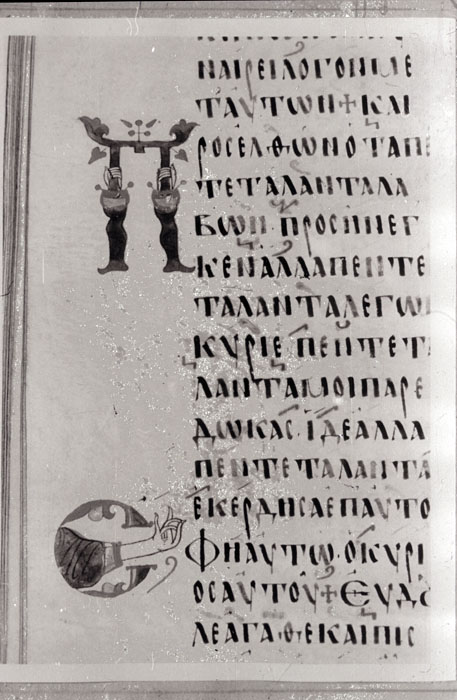 ΝΑΙΡΕΙΛΟΓΟΝΜΕ
ΤΑΥΤΩΝ+ΚΑΙ
ΠΡΟϹΕΛΘΩΝΟΤΑΠΕ
ΤΕΤΑΛΑΝΤΑΛΑ
ΒΩΝ·ΠΡΟϹΗΝΕΓ
ΚΕΝΑΛΛΑΠΕΝΤΕ
ΤΑΛΑΝΤΑΛΕΓΩΝ
ΚΥΡΙΕΠΕΝΤΕΤΑ
ΛΑΝΤΑΜΟΙΠΑΡΕ
ΔΩΚΑϹ·ΪΔΕΑΛΛΑ
ΠΕΝΤΕΤΑΛΑΝΤΑ
ΕΚΕΡΔΗϹΑΕΠΑΥΤΟ
ΕΦΗΑΥΤΩ·ΟΚΥΡΙ
ΟϹΑΥΤΟΥ+ΕΥΔΟ
ΛΕΑΓΑΘΕΚΑΙΠΙϹ